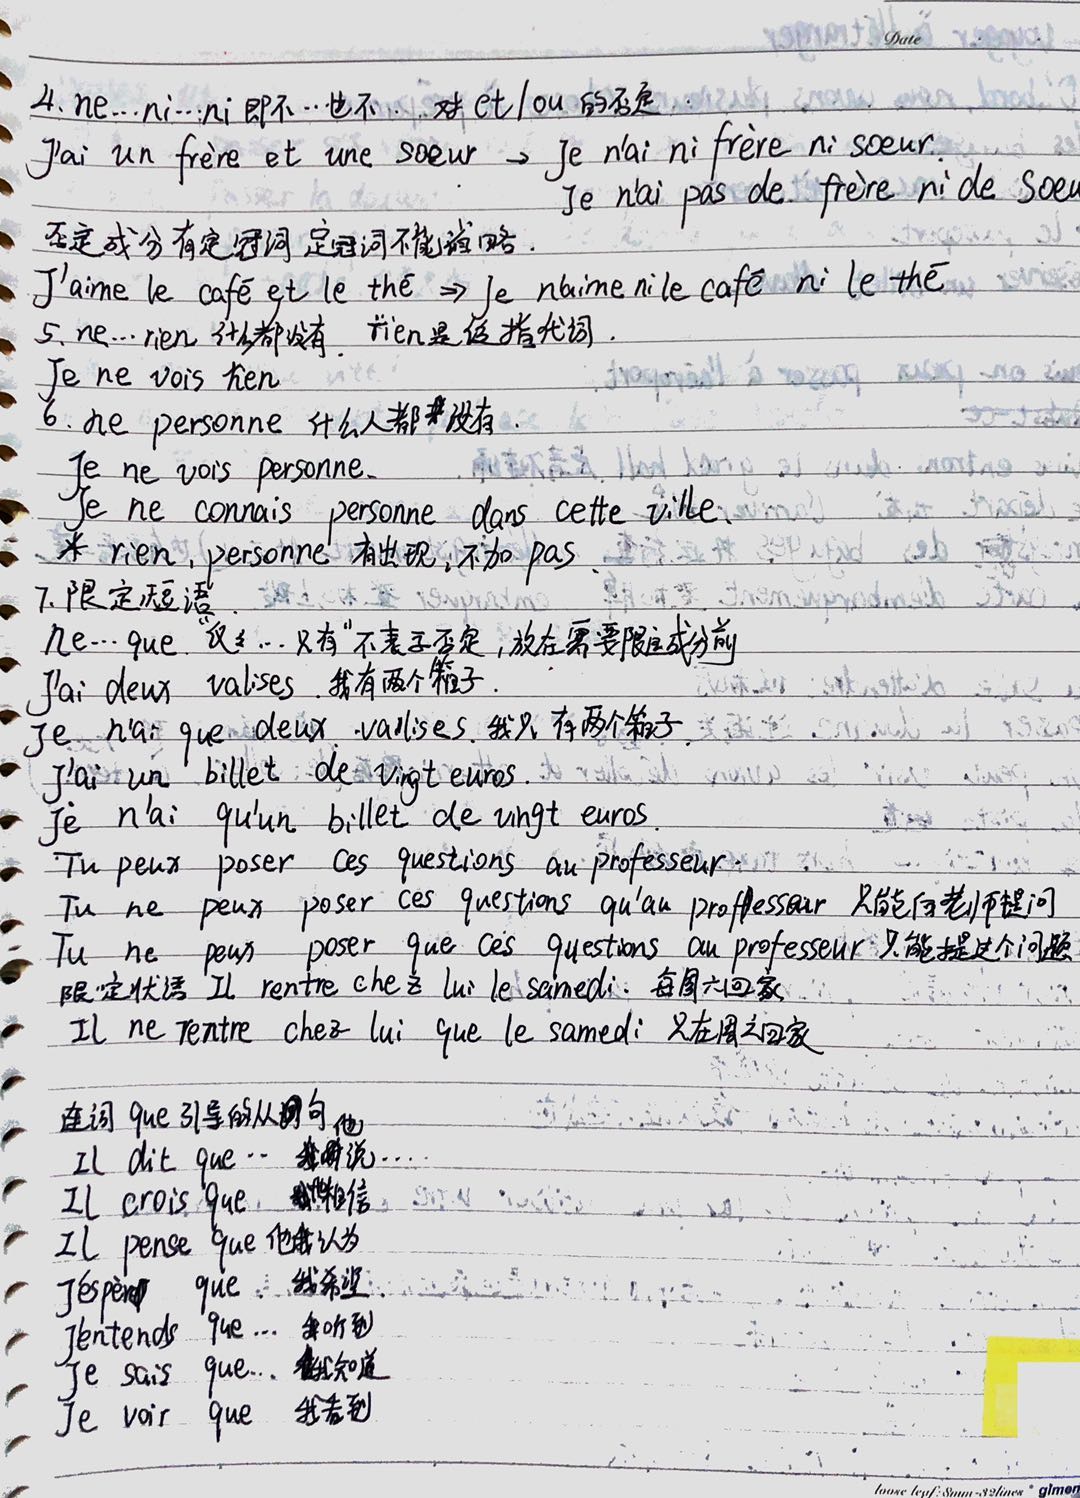 Date
4. ne…ni…ni 即不…也不… 对 et/ou 的否定
J'ai un frère et une soeur → Je n'ai ni frère ni soeur.
Je n'ai pas de frère ni de soeu
否定成分有定冠词 定冠词不能省略.
J'aime le café et le thé ⇒ Je n'aime ni le café ni le thé
5. ne…rien 什么都没有. rien是泛指代词.
Je ne vois rien
6. ne personne 什么人都没有.
Je ne vois personne.
Je ne connais personne dans cette ville.
* rien, personne 有出现,不加 pas.
7. 限定短语.
ne…que "仅…只有" 不表示否定,放在需要限定成分前
J'ai deux valises. 我有两个箱子.
Je n'ai que deux valises. 我只有两个箱子
J'ai un billet de vingt euros.
Je n'ai qu'un billet de vingt euros.
Tu peux poser ces questions au professeur.
Tu ne peux poser ces questions qu'au professeur 只能向老师提问
Tu ne peux poser que ces questions au professeur 只能提这个问题
限定状语 Il rentre chez lui le samedi. 每周六回家
Il ne rentre chez lui que le samedi 只在周六回家
连词 que 引导的从句
Il dit que … 他说….
Il crois que 他相信
Il pense que 他认为
J'espère que 我希望
J'entends que … 我听到
Je sais que… 我知道
Je voir que 我看到
loose leaf: 8mm-32lines